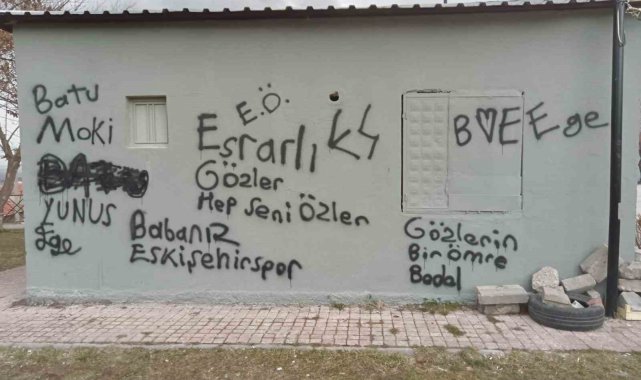 Batu
Moki
YUNUS
Ege
E.Ö.
Esrarlı
Gözler
Hep Seni Özler
KS
Babanız
Eskişehirspor
B♥E Ege
Gözlerin
Bir Ömre
Bedel